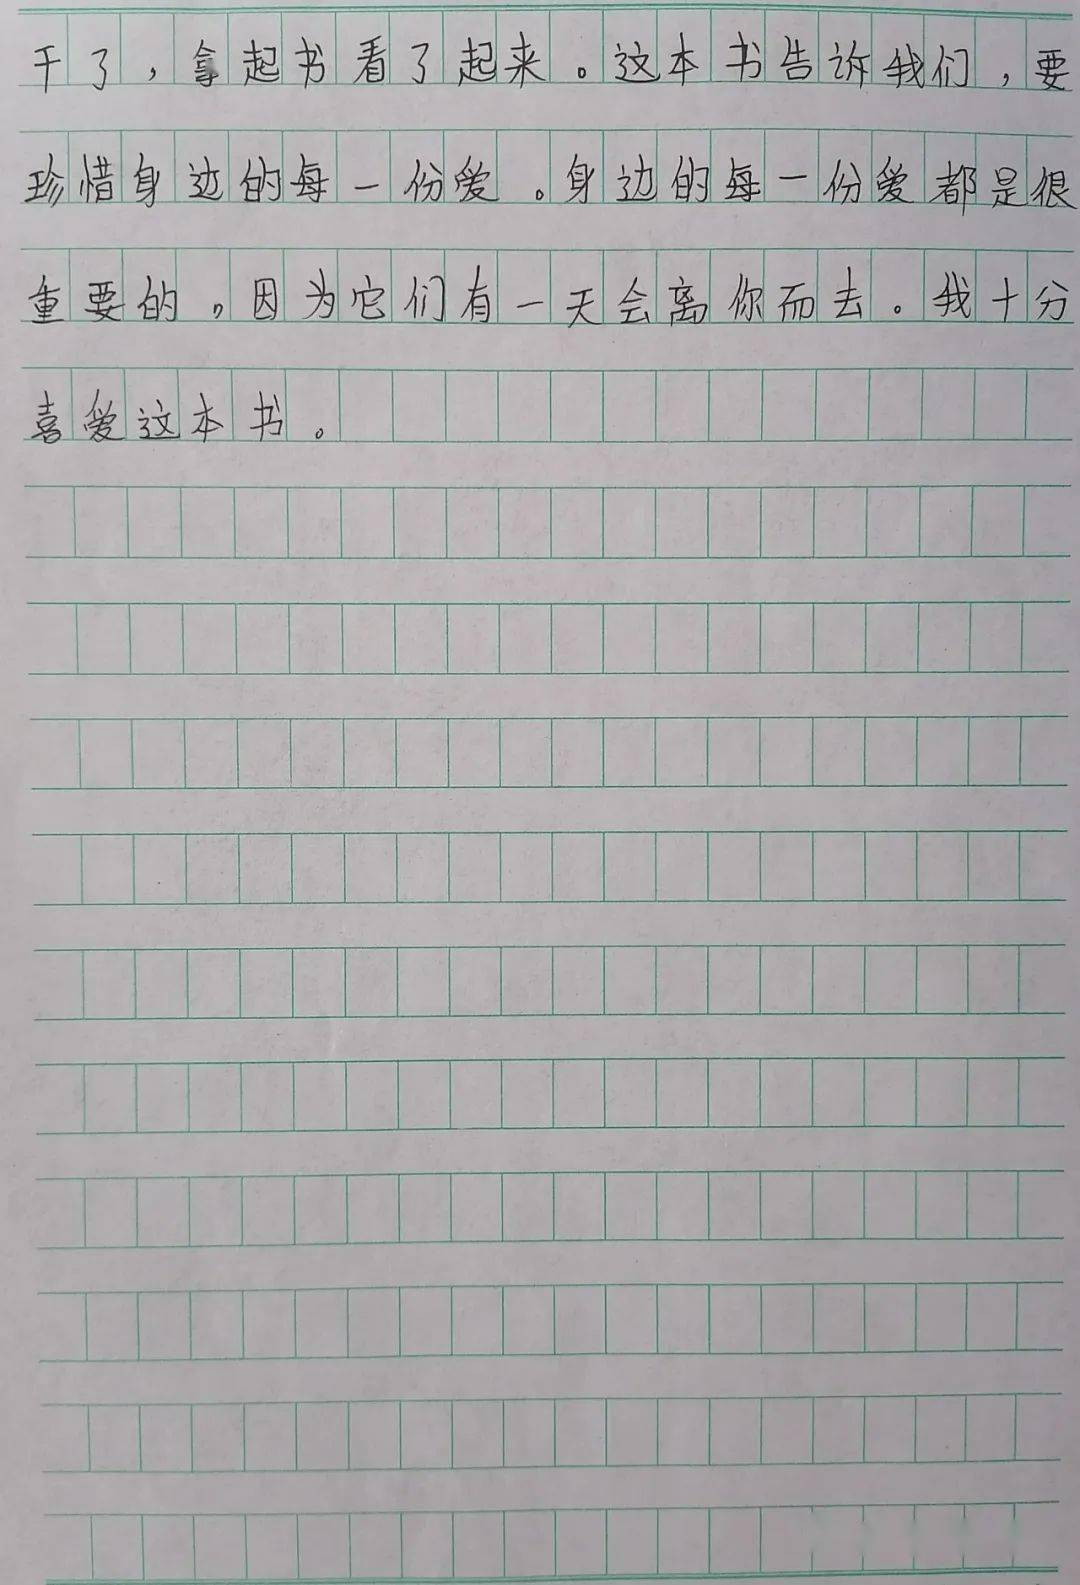 干了，拿起书看了起来。这本书告诉我们，要
珍惜身边的每一份爱。身边的每一份爱都是很
重要的，因为它们有一天会离你而去。我十分
喜爱这本书。